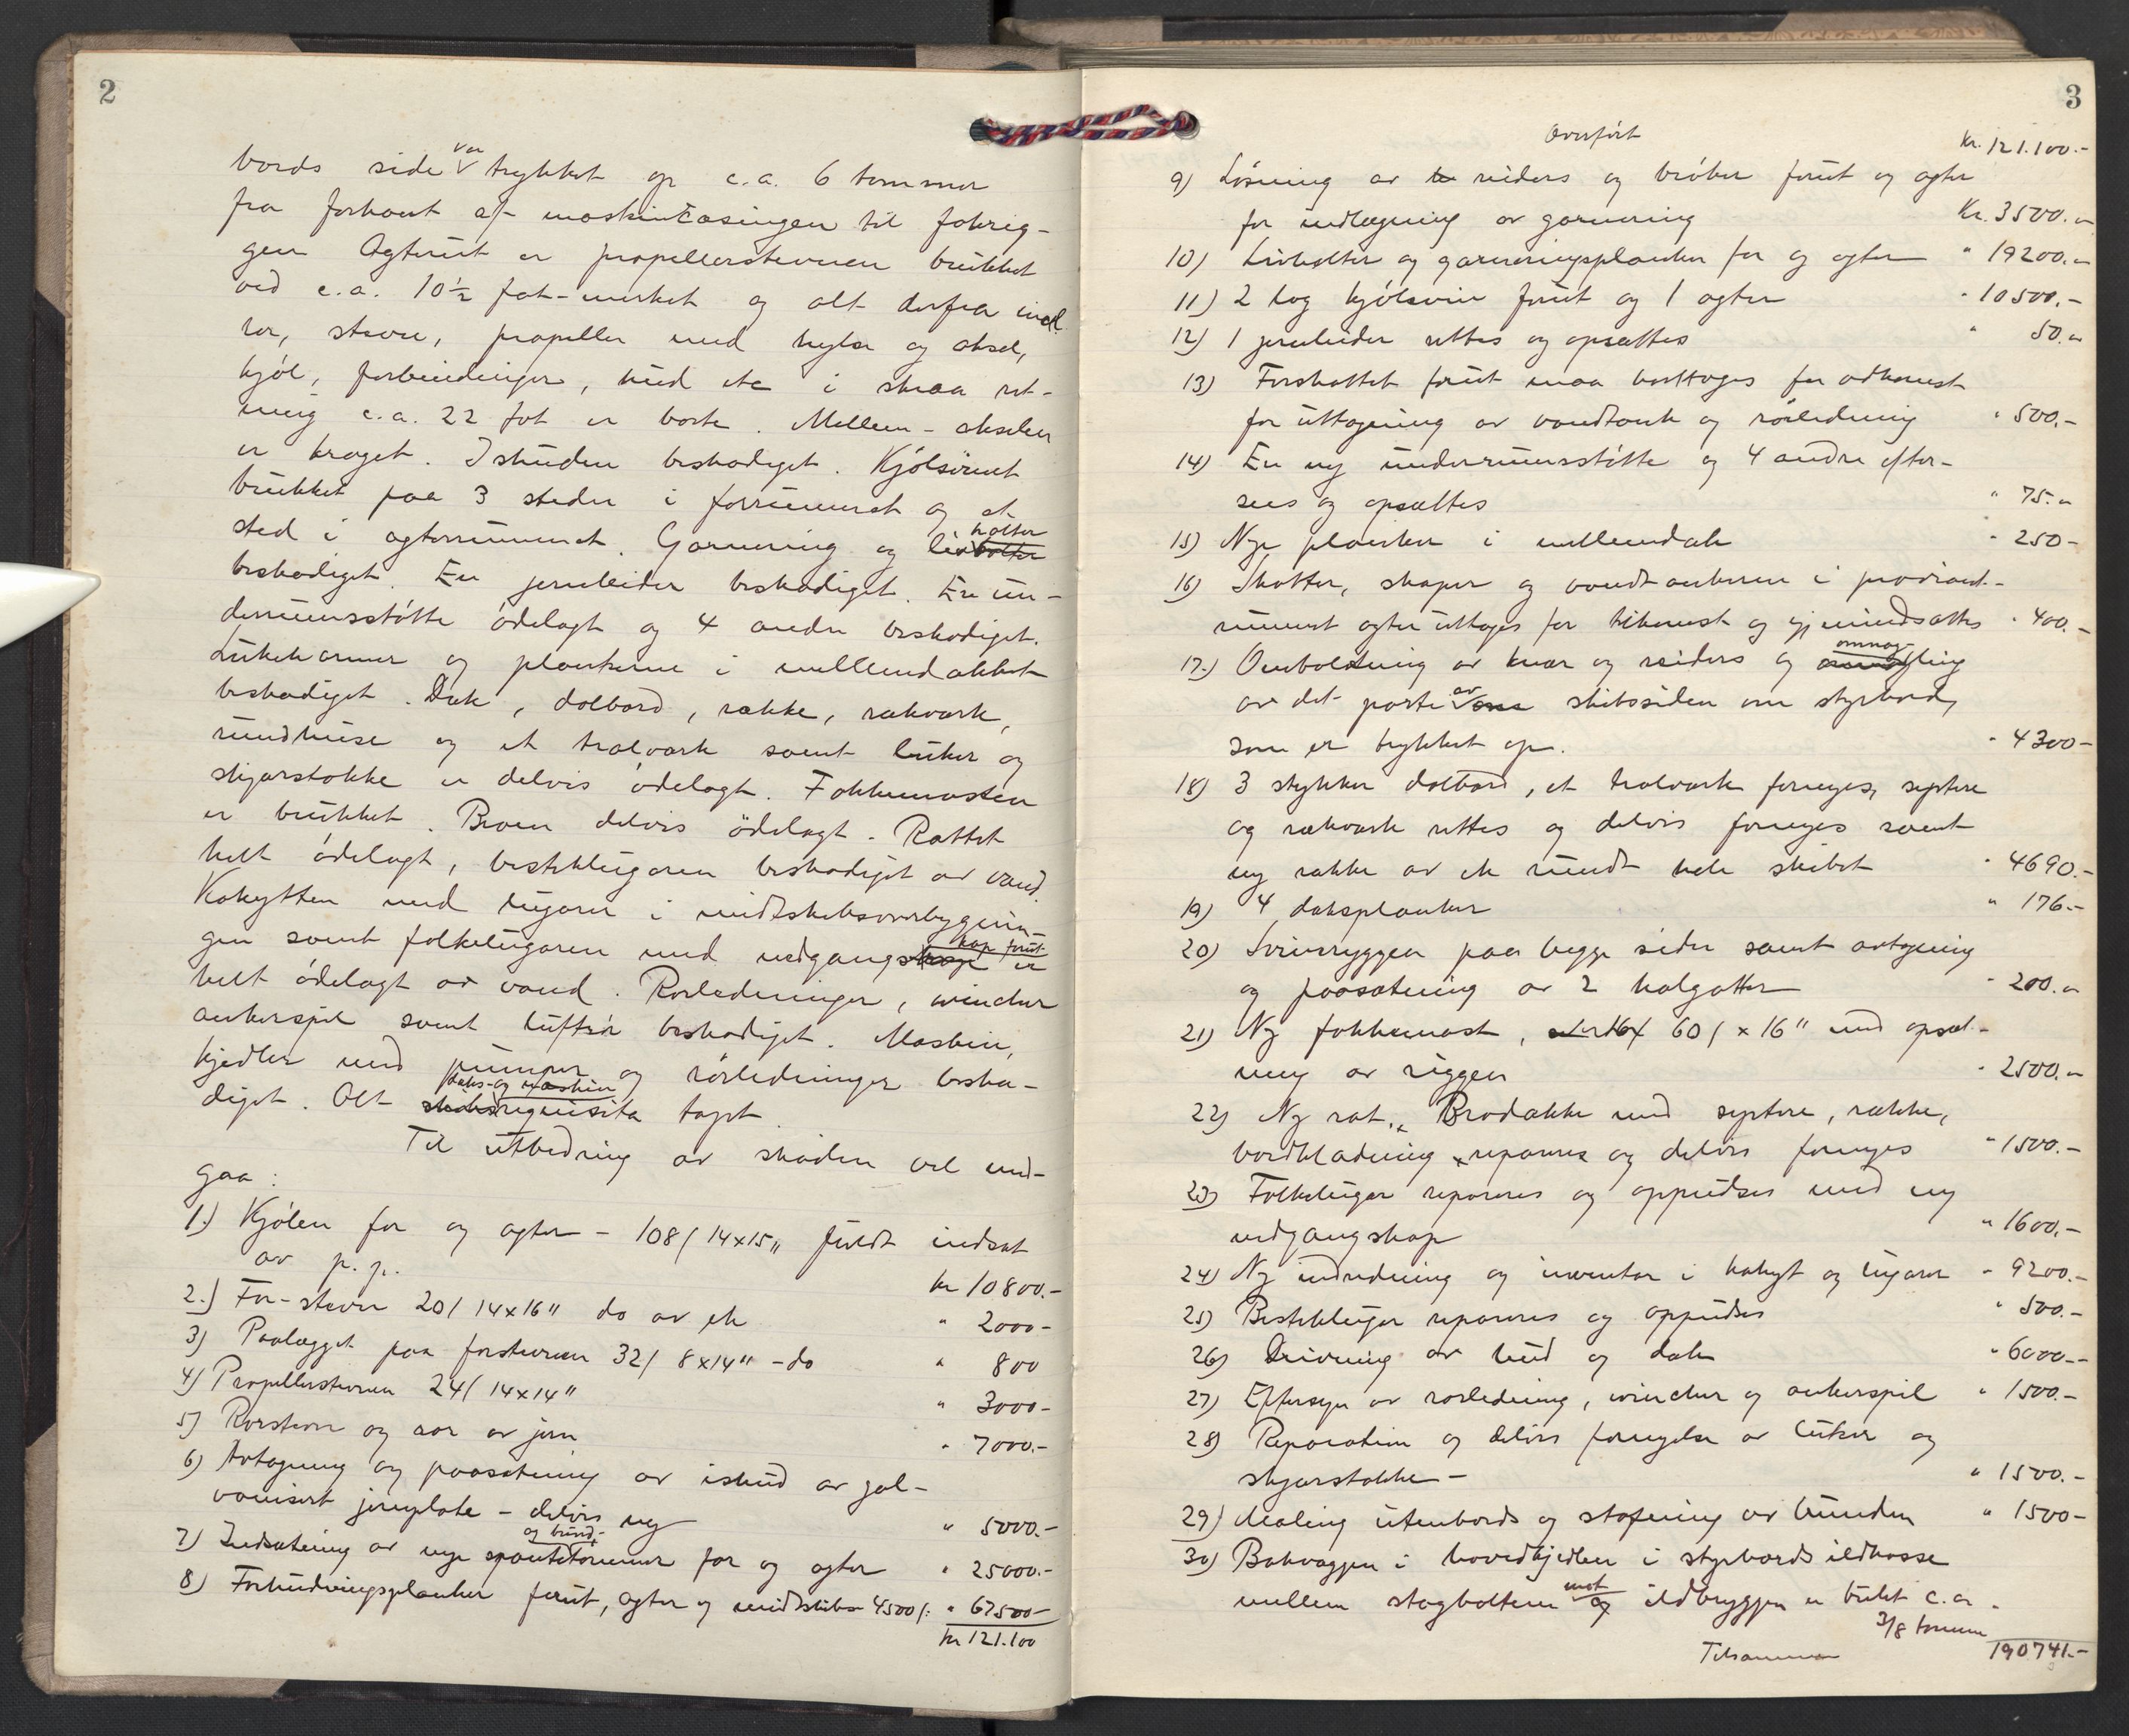 2
bords side var trykket op c.a. 6 tommer
fra forkant af maskincasingen til fokrig-
gen Agterut er propellerstevnen brukket
ved c.a. 10½ fot-merket og alt derfra incl.
ror, stevne, propeller med hylse og aksel,
kjøl, forbindinger, hud etc i skraa ret-
ning c.a. 22 fot er borte. Mellem-akselen
er krøget. Ishuden beskadiget. Kjølsvinet
brukket paa 3 steder i forrummet og et
sted i agterrummet. Garnering og livholter
beskadiget. En jernleider beskadiget. En un-
derrumsstøtte ödelagt og 4 andre beskadiget.
Lukekarmer og plankerne i mellemdækket
beskadiget. Dæk, dolbord, række, rækværk,
rundhuse og et tralværk samt luker og
skjærstokke er delvis ödelagt. Fokkemasten
er brukket. Broen delvis ödelagt. Rattet
helt ödelagt, bestiklugaren beskadiget av vand.
Kahytten med lugarer i midtskibsoverbygnin-
gen samt folkelugaren med nedgangskap forut er
helt ödelagt av vand. Rorledninger, wincher
ankerspil samt luftrør beskadiget. Maskin,
kjedler med pumper og rörledninger beska-
diget. Alt dæks- og maskin requisita tapt.
Til utbedring av skaden vil med-
gaa:
1.) Kjølen for og agter - 108/ 14x15" fuldt indsat
av p.p. kr 10800.-
2.) For-stevn 20/ 14x16" do av ek " 2000-
3) Paalægget paa forstevnen 32/ 8x14" - do " 800
4) Propellerstevnen 24/ 14x14" " 3000-
5) Rorstevn og ror av jern " 7000.-
6) Avtagning og paasætning av ishud av gal-
vanisert jernplate - delvis ny " 5000.-
7) Indsætning av nye spanter og bund- for og agter " 25000.-
8) Forhudningsplanker forut, agter og midtskibs 4500/: " 67500-
kr 121.100
3
Overført Kr. 121.100.-
9) Løsning av reiders og bröker forut og agter
for indlægning av garnering Kr. 3500.-
10) Livholter og garneringsplanker for og agter " 19200.-
11) 2 log kjølsvin forut og 1 agter " 10500.-
12) 1 jernleider rettes og opsættes " 50.-
13) Forskottet forut maa borttages for adkomst
for uttagning av vandtank og rörledning " 500.-
14) En ny underrumsstøtte og 4 andre efter-
sees og opsættes " 75.-
15) Nye planker i mellemdæk " 250-
16) Skotter, skaper og vandtankene i proviant-
rummet agter uttages for tilkomst og gjenindsættes " 400.-
17.) Omboltning av knær og reiders og omnagling
av det parti av skibssiden om styrbord,
som er trykket op. " 4300-
18) 3 stykker dolbord, et tralværk fornyes, septere
og rækværk rettes og delvis fornyes samt
ny række av ek rundt hele skibet " 4690.-
19) 4 dæksplanker " 176.-
20) Svinryggen paa begge sider samt avtagning
og paasætning av 2 halgatter " 200.-
21) Ny fokkemast, 60/ x 16" med opsæt-
ning av riggen " 2500.-
22) Ny rat. Brodække med septere, række,
bordklædning repareres og delvis fornyes " 1500.-
23) Folkelugar repareres og oppudses med ny
nedgangskap " 1600.-
24) Ny indredning og inventar i kahyt og lugarer " 9200.-
25) Bestiklugar repareres og oppudses " 500.-
26) Drivning av hud og dæk " 6000.-
27) Eftersyn av rorledning, wincher og ankerspil " 1500.-
28) Reparation og delvis fornyelse av luker og
skjærstokke - " 1500.-
29) Maling utenbords og stofning av bunden " 1500-
30) Bakvæggen i hovedkjedlen i styrbords ildkasse
mellem stagboltene mot ildbryggen er bulet c.a.
3/8 tomme
Tilsammen 190741.-